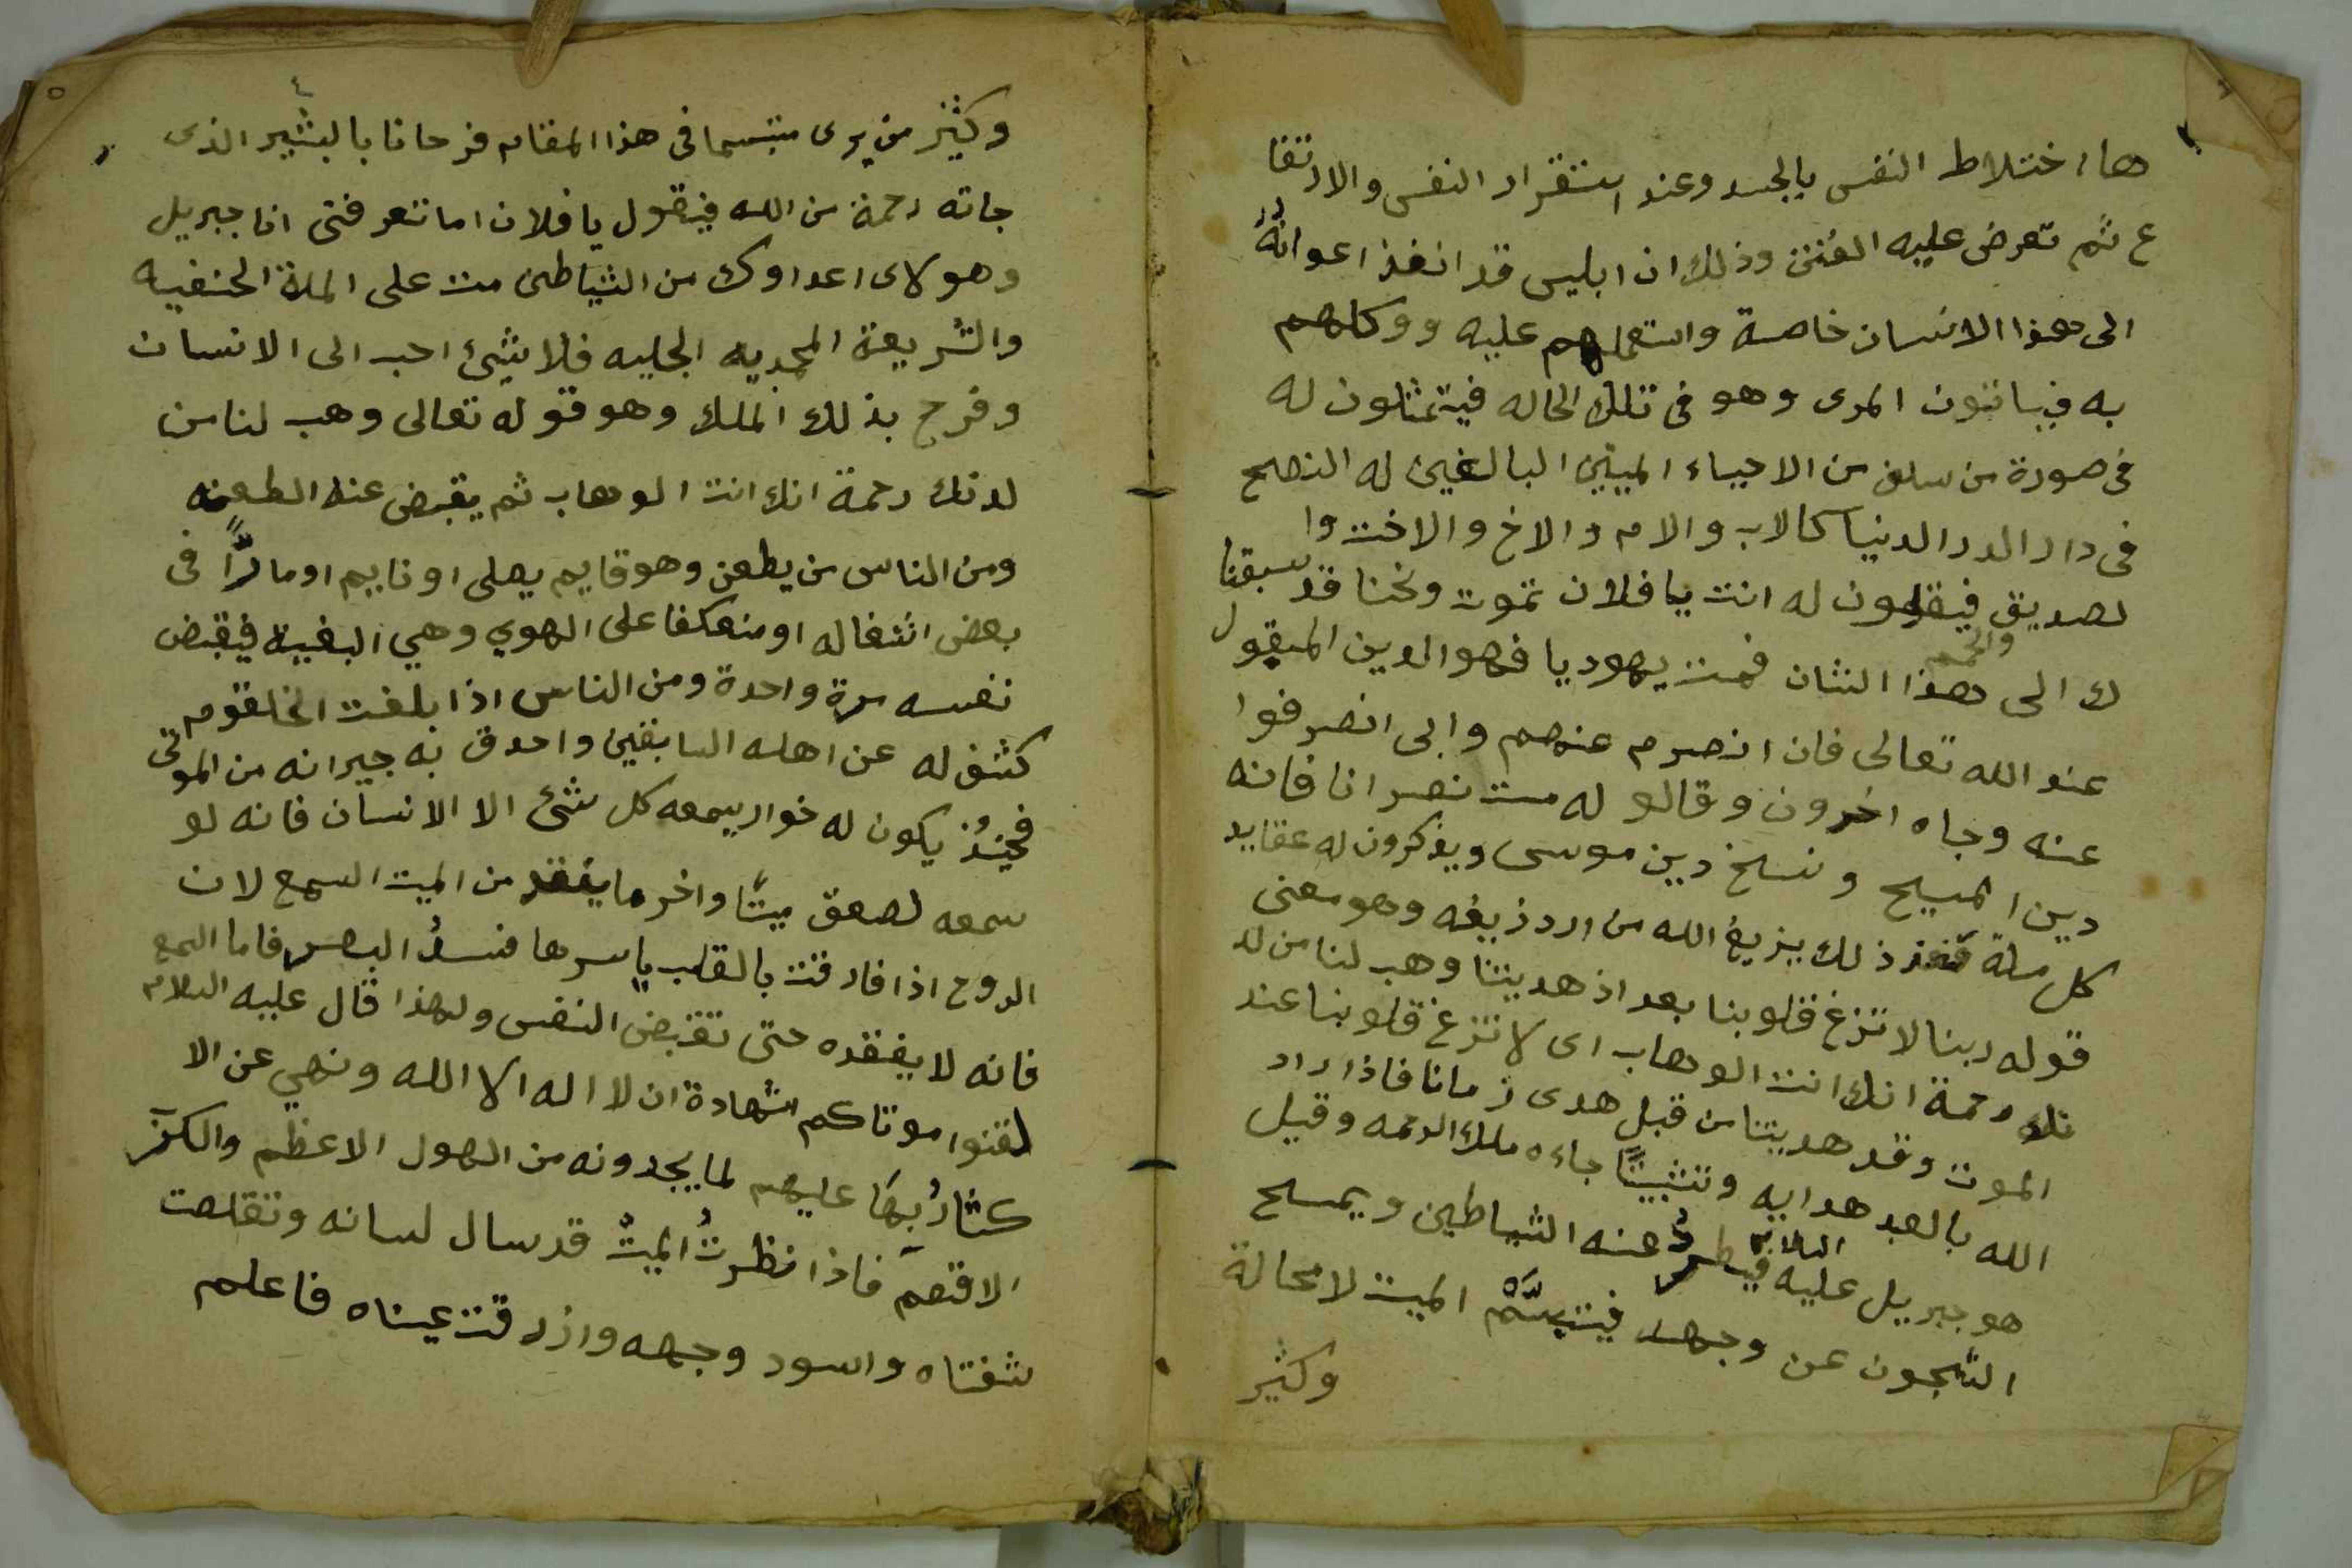 ها اختلاط النفس بالجسد وعند استقرار النفس والارتقا
ع ثم تعرض عليه الفتن وذلك ان ابليس قد انفذ اعوانهُ
الى هذا الانسان خاصة واستعملهم عليه ووكلهم
به فيباتون المرى وهو فى تلك الحاله فيتمثلون له
فى صورة من سلف من الاحياء الميتين البالغين له النصح
فى دار الدر الدنيا كالاب والام والاخ والاخت وا
لصديق فيقلون له انت يا فلان تموت ونحنا قد سبقنا
ك الى هذا الشان فمت يهوديا فهو الدين المقبول
عند الله تعالى فان انصرم عنهم وابى انصرفوا
عنه وجاه اخرون وقالو له مت نصرانا فانه
دين المسيح ونسخ دين موسى ويذكرون له عقايد
كل ملة فعند ذلك يزيغ الله من ارد زيغه وهو معنى
قوله ربنا لا تزغ قلوبنا بعد اذ هديتنا وهب لنا من لد
نك رحمة انك انت الوهاب اى لا تزغ قلوبنا عند
الموت وقد هديتنا من قبل هدى زمانا فاذا اراد
الله بالعبد هدايه وتثبيتًا جاءه ملك الرحمه وقيل
هو جبريل عليه السلام فيطردُ عنه الشياطين ويمسح
الشجون عن وجهه فيتبسّم الميت لا محالة
وكثير
وكثير من يرى متبسما فى هذا المقام فرحانا بالبشير الذى
جاته رحمة من الله فيقول يا فلان اما تعرفنى انا جبريل
وهولاى اعداوك من الشياطين مت على الملة الحنفيه
والشريعة المحمديه الجليه فلا شيئ احب الى الانسان
وفرح بذلك الملك وهو قوله تعالى وهب لنا من
لدنك رحمة انك انت الوهاب ثم يقبض عند الطعنه
ومن الناس من يطعن وهو قايم يصلى او نايم او مارًّا فى
بعض اشغاله او منعكفا على الهوي وهي البغية فيقبض
نفسه مرة واحدة ومن الناس اذا بلغت الحلقوم
كشف له عن اهله السابقين واحدق به جيرانه من الموتى
فحينئذٍ يكون له خوار يسمعه كل شئ الا الانسان فانه لو
سمعه لصعق ميتًا واخر ما يفقد من الميت السمع لان
الروح اذا فارقت بالقلب ياسرها فسدُ البصر فاما السمع
فانه لا يفقده حتى تقبض النفس ولهذا قال عليه السلام
لقنوا موتاكم شهادة ان لا اله الا الله ونهي عن الا
كثارُ بها عليهم لما يجدونه من الهول الاعظم والكر
فاذا نظرتُ الميتُ قد سال لسانه وتقلصت
شفتاه واسود وجهه وازرقت عيناه فاعلم